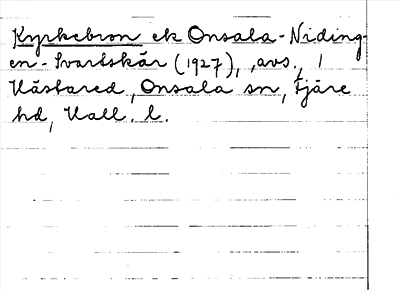 Kyrkebron ek Onsala-Niding-
en-Svartskär (1927), avs., 1
Västared, Onsala sn, Fjäre
hd, Hall. l.